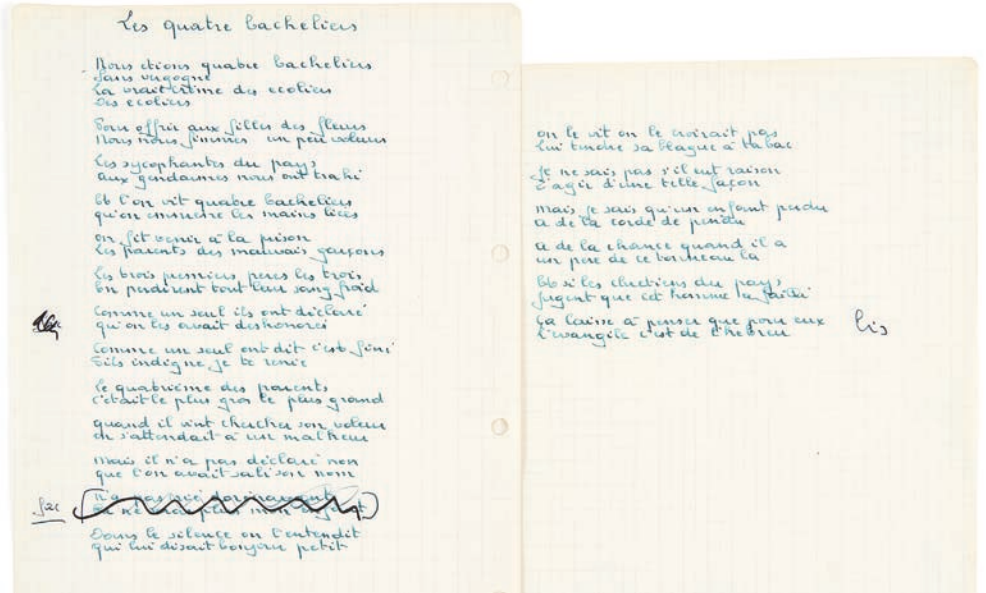 Les quatre bacheliers
Nous étions quatre bacheliers
Sans vergogne
La vrai crème des ecoliers
Des ecoliers
Pour offrir aux filles des fleurs
Nous nous fimmes un peu voleurs
Les sycophantes du pays
aux gendarmes nous ont trahi
Et l'on vit quatre bacheliers
qu'on emmene les mains liées
on fit venir à la prison
Les parents des mauvais garçons
Les trois premiers peres les trois
En perdirent tout leur sang froid
Comme un seul ils ont déclaré
qu'on les avait deshonorés
Comme un seul ont dit c'est fini
Fils indigne je te renie
le quatrième des parents
c'était le plus gros le plus grand
quand il vint chercher son voleur
on s'attendait à un malheur
mais il n'a pas déclaré non
que l'on avait sali son nom
Dans le silence on l'entendit
qui lui disait bonjour petit
on le vit on le croirait pas
lui tendre sa blague à tabac
Je ne sais pas s'il eut raison
d'agir d'une telle façon
mais je sais qu'un enfant perdu
a de la corde de pendu
a de la chance quand il a
un père de ce tonneau là
Et si les chretiens du pays
jugent que cet homme a failli
ça laisse à penser que pour eux
l'évangile c'est de l'hebreu
bis